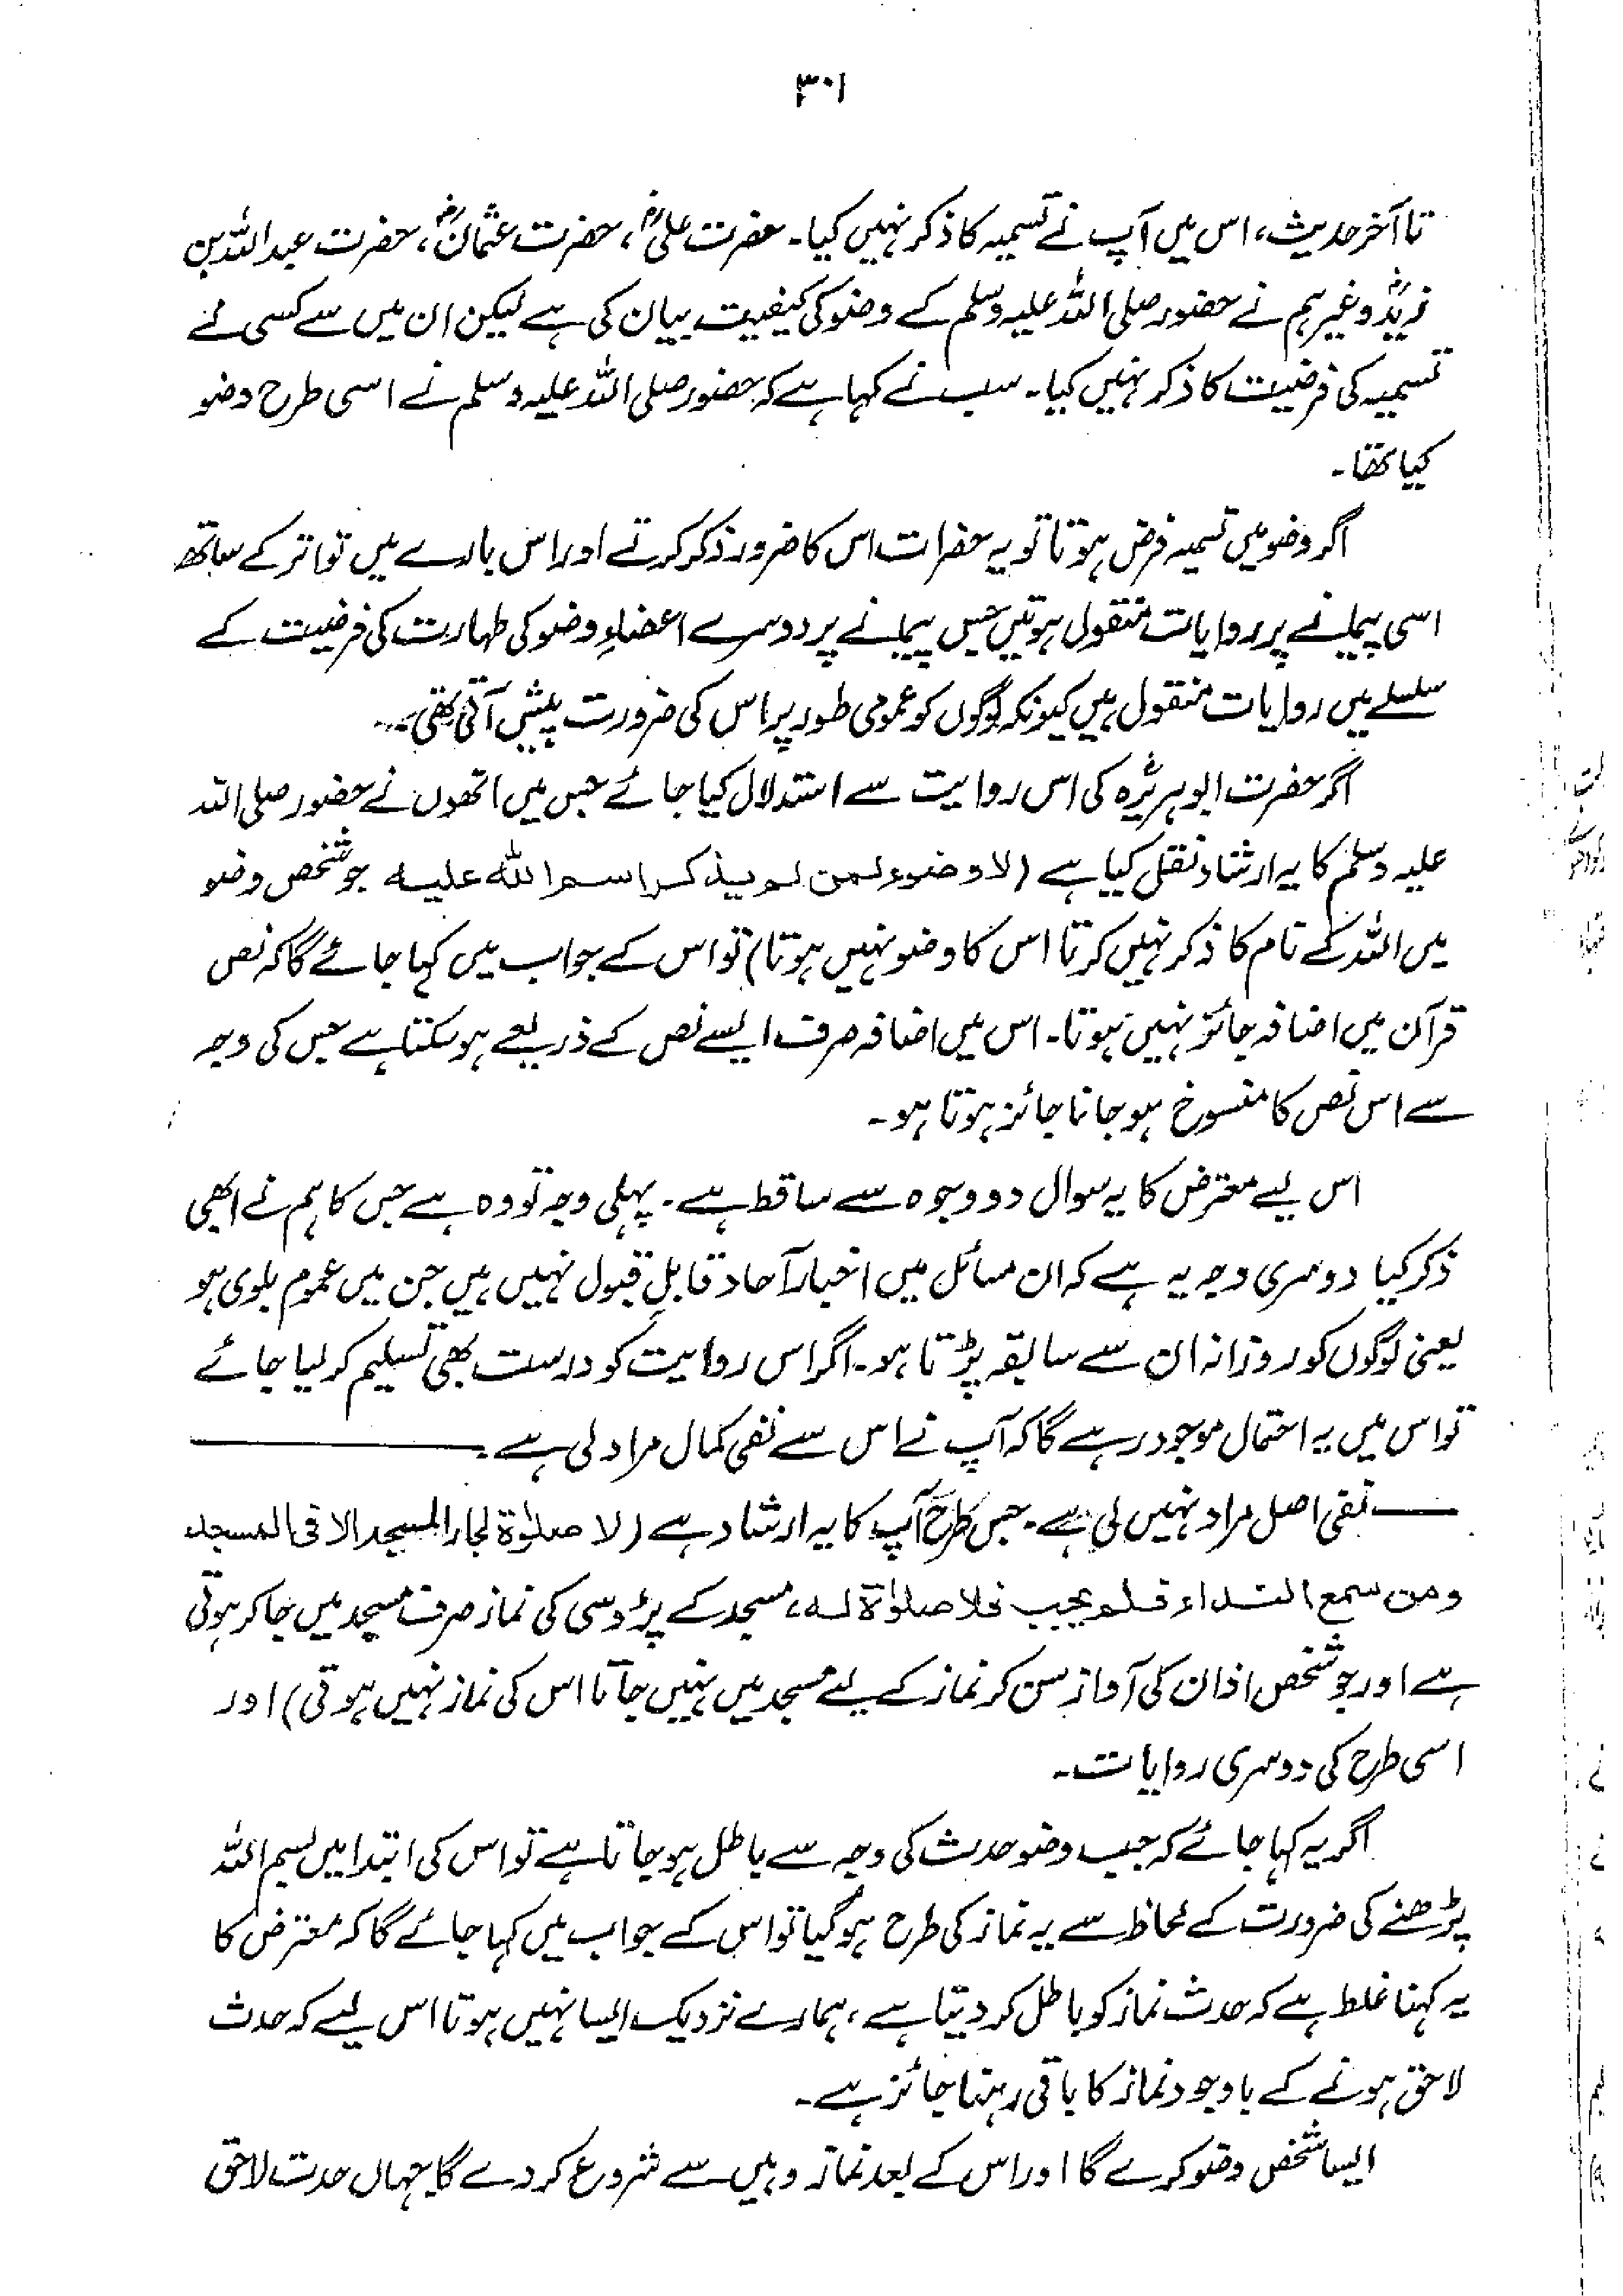 ۳۰۱
تا آخر حدیث، اس میں آپ نے تسمیہ کا ذکر نہیں کیا۔ حضرت علیؓ، حضرت عثمانؓ، حضرت عبداللہ بن
زیدؓ وغیرہم نے حضور صلی اللہ علیہ وسلم کے وضو کی کیفیت بیان کی ہے لیکن ان میں سے کسی نے
تسمیہ کی فرضیت کا ذکر نہیں کیا۔ سب نے کہا ہے کہ حضور صلی اللہ علیہ وسلم نے اسی طرح وضو
کیا تھا۔
اگر وضو میں تسمیہ فرض ہوتا تو یہ حضرات اس کا ضرور ذکر کرتے اور اس بارے میں تواتر کے ساتھ
اسی پیمانے پر روایات منقول ہوتیں جس پیمانے پر دوسرے اعضاءِ وضو کی طہارت کی فرضیت کے
سلسلے میں روایات منقول ہیں کیونکہ لوگوں کو عمومی طور پر اس کی ضرورت پیش آتی تھی۔
اگر حضرت ابوہریرؓہ کی اس روایت سے استدلال کیا جائے جس میں انھوں نے حضور صلی اللہ
علیہ وسلم کا یہ ارشاد نقل کیا ہے (لا وضوء لمن لم یذکر اسم اللہ علیہ جو شخص وضو
میں اللہ کے نام کا ذکر نہیں کرتا اس کا وضو نہیں ہوتا) تو اس کے جواب میں کہا جائے گا کہ نص
قرآن میں اضافہ جائز نہیں ہوتا۔ اس میں اضافہ صرف ایسے نص کے ذریعے ہوسکتا ہے جس کی وجہ
سے اس نص کا منسوخ ہو جانا جائز ہوتا ہو۔
اس لیے معترض کا یہ سوال دو وجوہ سے ساقط ہے۔ پہلی وجہ تو وہ ہے جس کا ہم نے ابھی
ذکر کیا دوسری وجہ یہ ہے کہ ان مسائل میں اخبار آحاد قابلِ قبول نہیں ہیں جن میں عموم بلوی ہو
یعنی لوگوں کو روزانہ ان سے سابقہ پڑتا ہو۔ اگر اس روایت کو درست بھی تسلیم کر لیا جائے
تو اس میں یہ احتمال موجود رہے گا کہ آپ نے اس سے نفی کمال مراد لی ہے۔
نفی اصل مراد نہیں لی ہے۔ جس طرح آپ کا یہ ارشاد ہے (لا صلوٰۃ لجار المسجد الا فی المسجد
ومن سمع النداء فلم یجب فلا صلوٰۃ لہ، مسجد کے پڑوسی کی نماز صرف مسجد میں جا کر ہوتی
ہے اور جو شخص اذان کی آواز سن کر نماز کے لیے مسجد میں نہیں جاتا اس کی نماز نہیں ہوتی) اور
اسی طرح کی دوسری روایات۔
اگر یہ کہا جائے کہ جب وضو حدث کی وجہ سے باطل ہو جاتا ہے تو اس کی ابتدا میں بسم اللہ
پڑھنے کی ضرورت کے لحاظ سے یہ نماز کی طرح ہو گیا تو اس کے جواب میں کہا جائے گا کہ معترض کا
یہ کہنا غلط ہے کہ حدث نماز کو باطل کر دیتا ہے، ہمارے نزدیک ایسا نہیں ہوتا اس لیے کہ حدث
لاحق ہونے کے باوجود نماز کا باقی رہنا جائز ہے۔
ایسا شخص وضو کرے گا اور اس کے بعد نماز وہیں سے شروع کر دے گا جہاں حدث لاحق